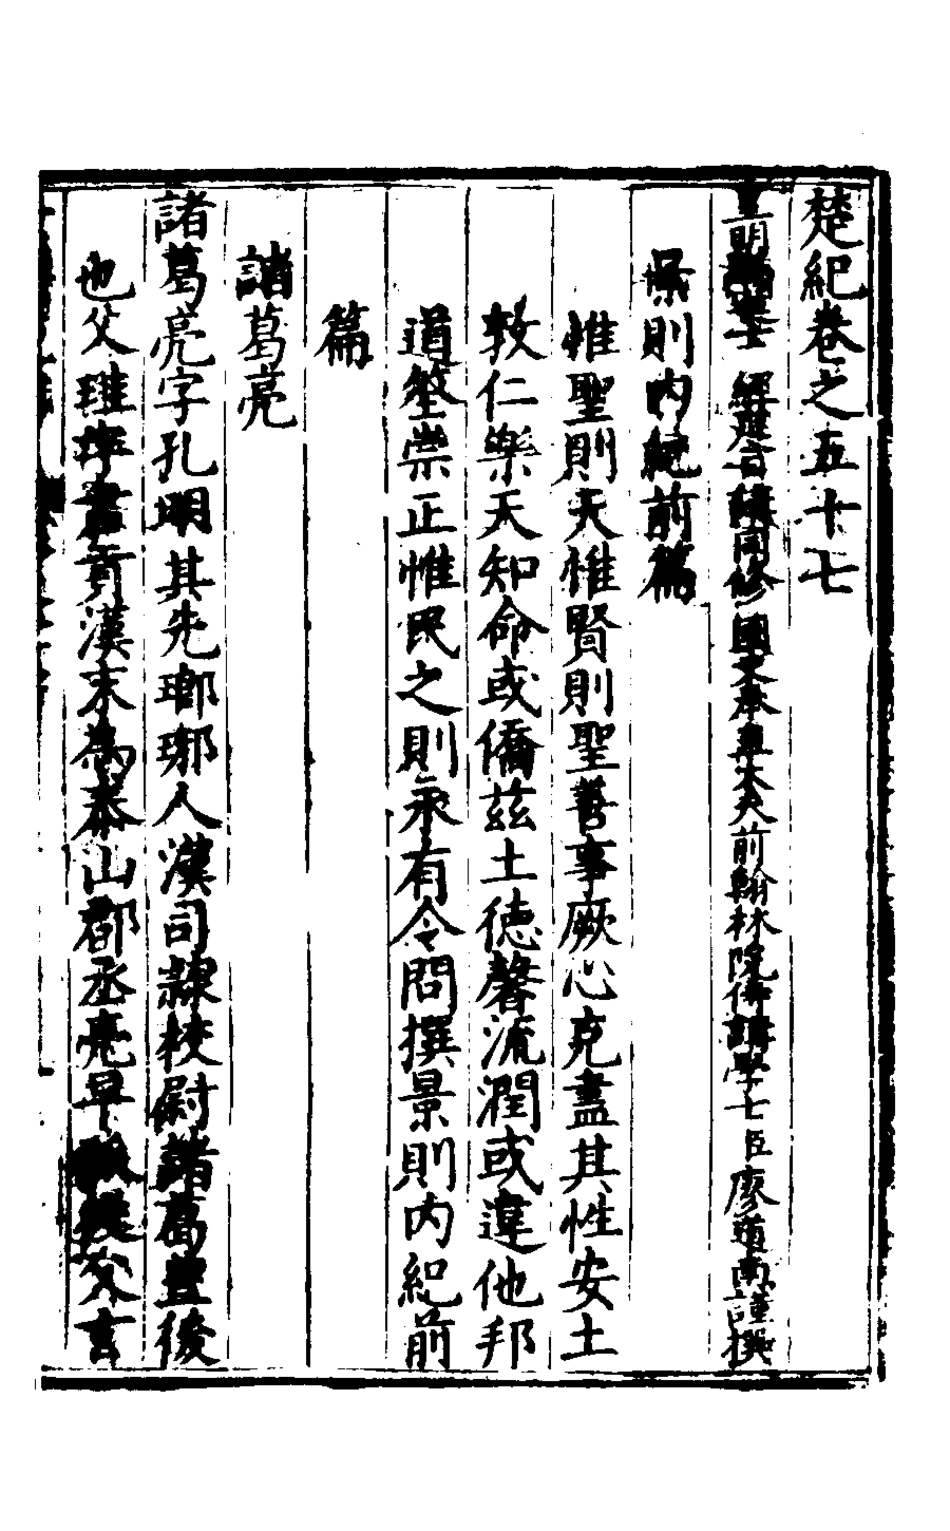 楚紀卷之五十七
皇明 經筵日講同修國史奉直大夫前翰林院侍講學士臣廖道南謹撰
景則內紀前篇
惟聖則天惟賢則聖善事厥心克盡其性安土
敦仁樂天知命或僑茲土德馨流潤或違他邦
道瑩崇正惟民之則永有令問撰景則內紀前
篇
諸葛亮
諸葛亮字孔明其先瑯琊人漢司隸校尉諸葛豐後
也父珪字君貢漢末為泰山郡丞亮早 從父玄